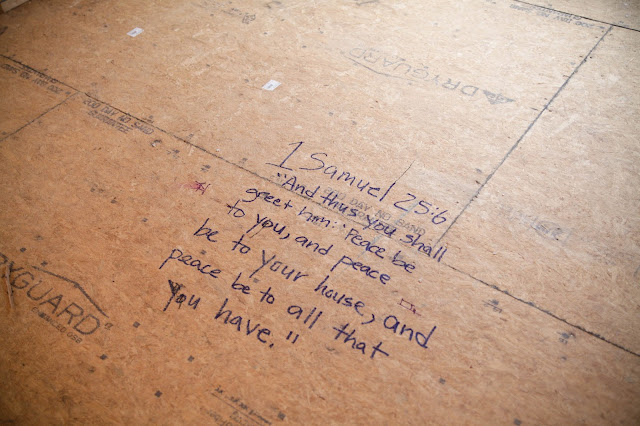 DRYGUARD
1 Samuel 25:6
"And thus you shall
greet him: 'Peace be
to you, and peace
be to your house, and
peace be to all that
you have."
DRYGUARD